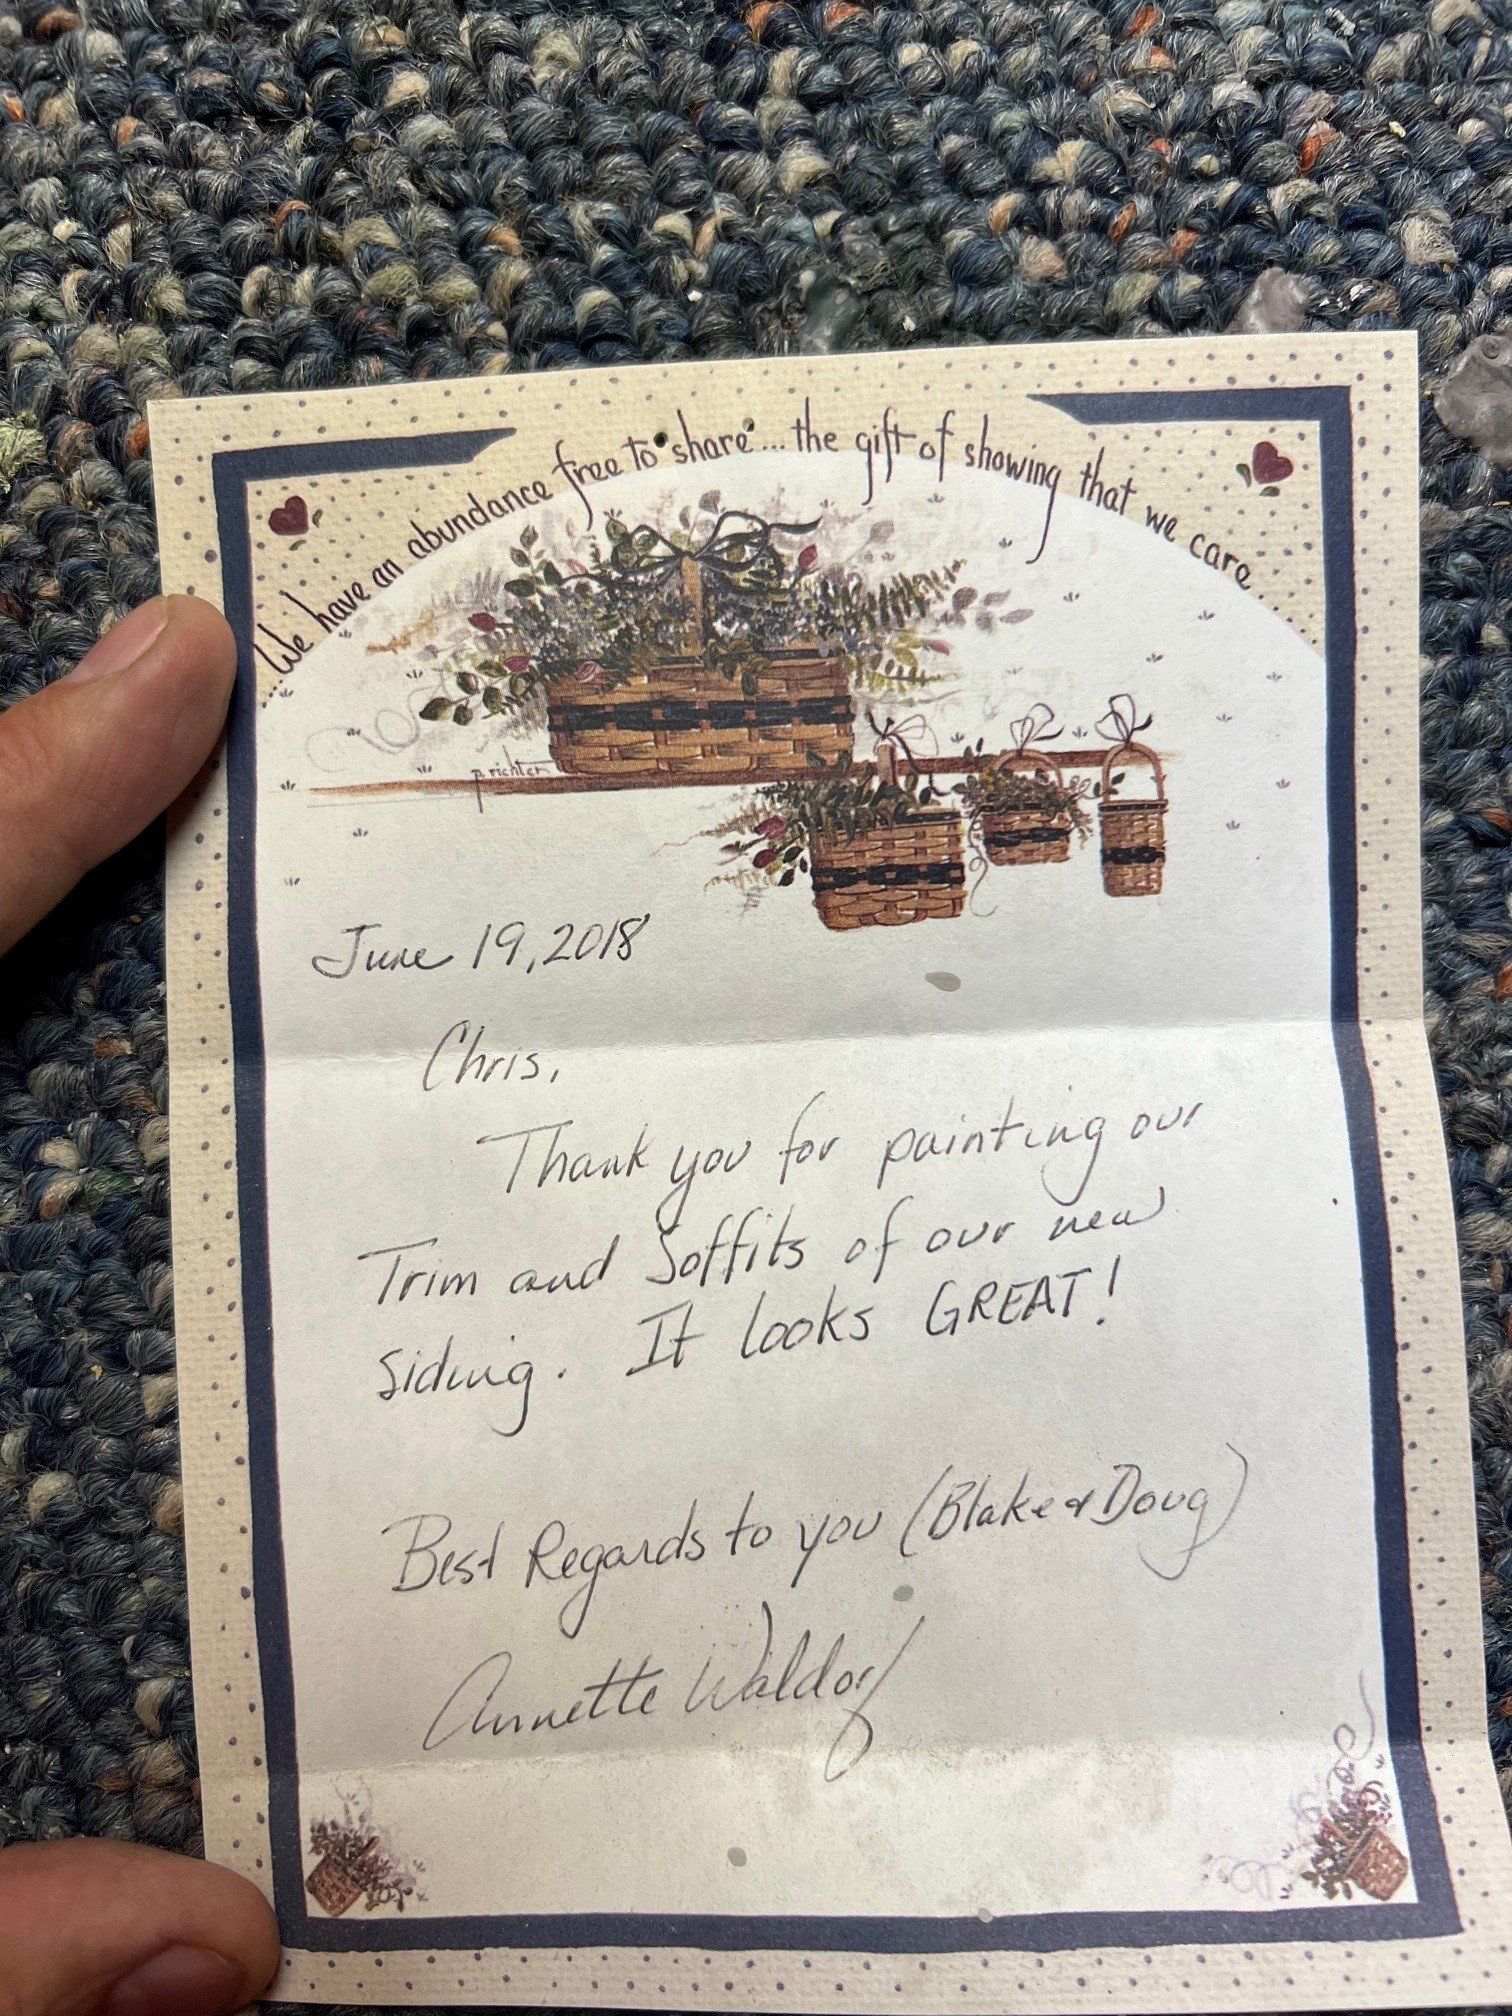 ...We have an abundance free to share... the gift of showing that we care
p. richter
June 19, 2018
Chris,
Thank you for painting our
Trim and Soffits of our new
siding. It looks GREAT!
Best Regards to you (Blake & Doug)
Annette Waldorf